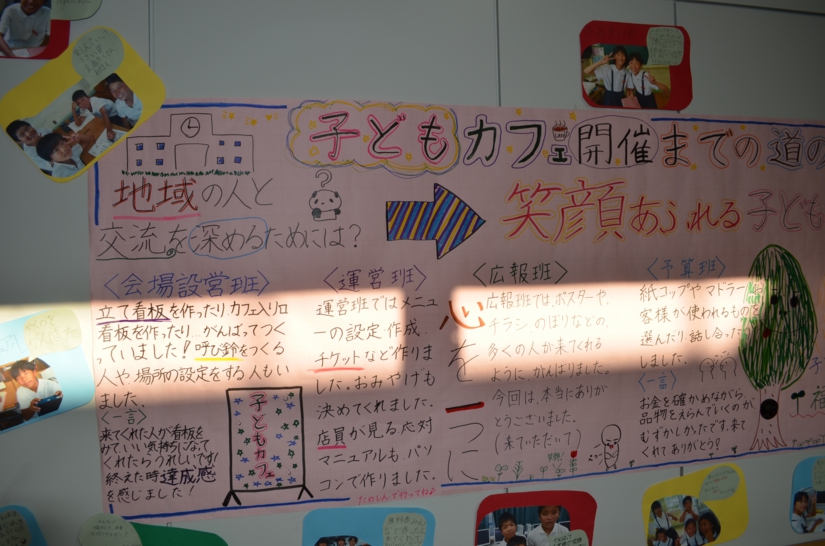 子どもカフェ開催までの道の
地域の人と
交流を深めるためには？
笑顔あふれる子ども
〈会場設営班〉
立て看板を作ったりカフェ入り口
看板を作ったり がんばってつく
っていました！呼び鈴をつくる
人や場所の設定をする人もい
ました。
〈一言〉
来てくれた人が看板を
みて、いい気持ちになって
くれたらうれしいです！
終えた時達成感
を感じました！
子どもカフェ
〈運営班〉
運営班ではメニュ
ーの設定・作成、
チケットなど作りま
した。おみやげも
決めてくれました。
店員が見る応対
マニュアルも、パソ
コンで作りました。
たのしんで行ってね♪
心を一つに
〈広報班〉
広報班では、ポスターや、
チラシ、のぼりなどの、
多くの人が来てくれる
ように、がんばりました。
今回は、本当にありが
とうございました。
(来ていただいて)
〈予算班〉
紙コップやマドラー
客様が使われるものを
選んだり話し合った
しました。
〈一言〉
お金を確かめながら、
品物をえらんでいくのが
むずかしかったです。来て
くれてありがとう？